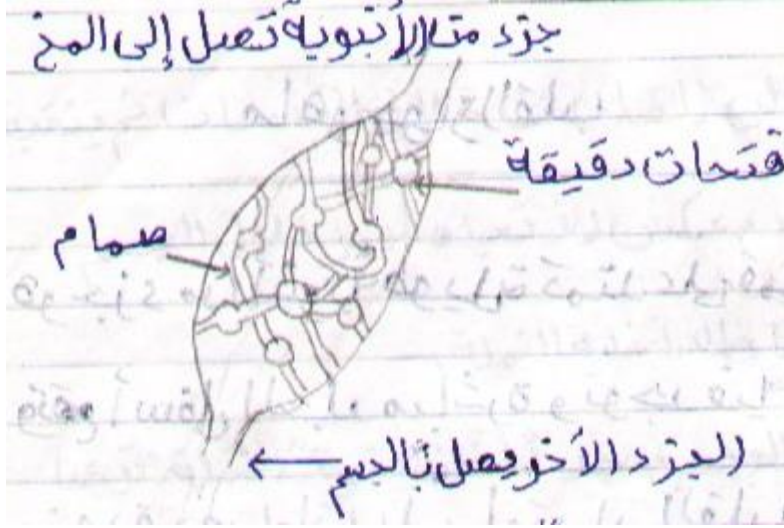 جزء من الأنبوبة تصل إلى المخ
فتحات دقيقة
صمام
الجزء الآخر يصل بالجسم